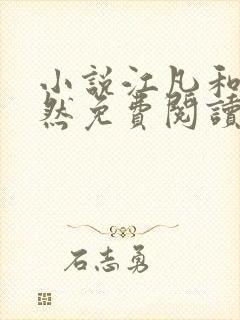 小说江凡和
然免費閱讀
石志勇